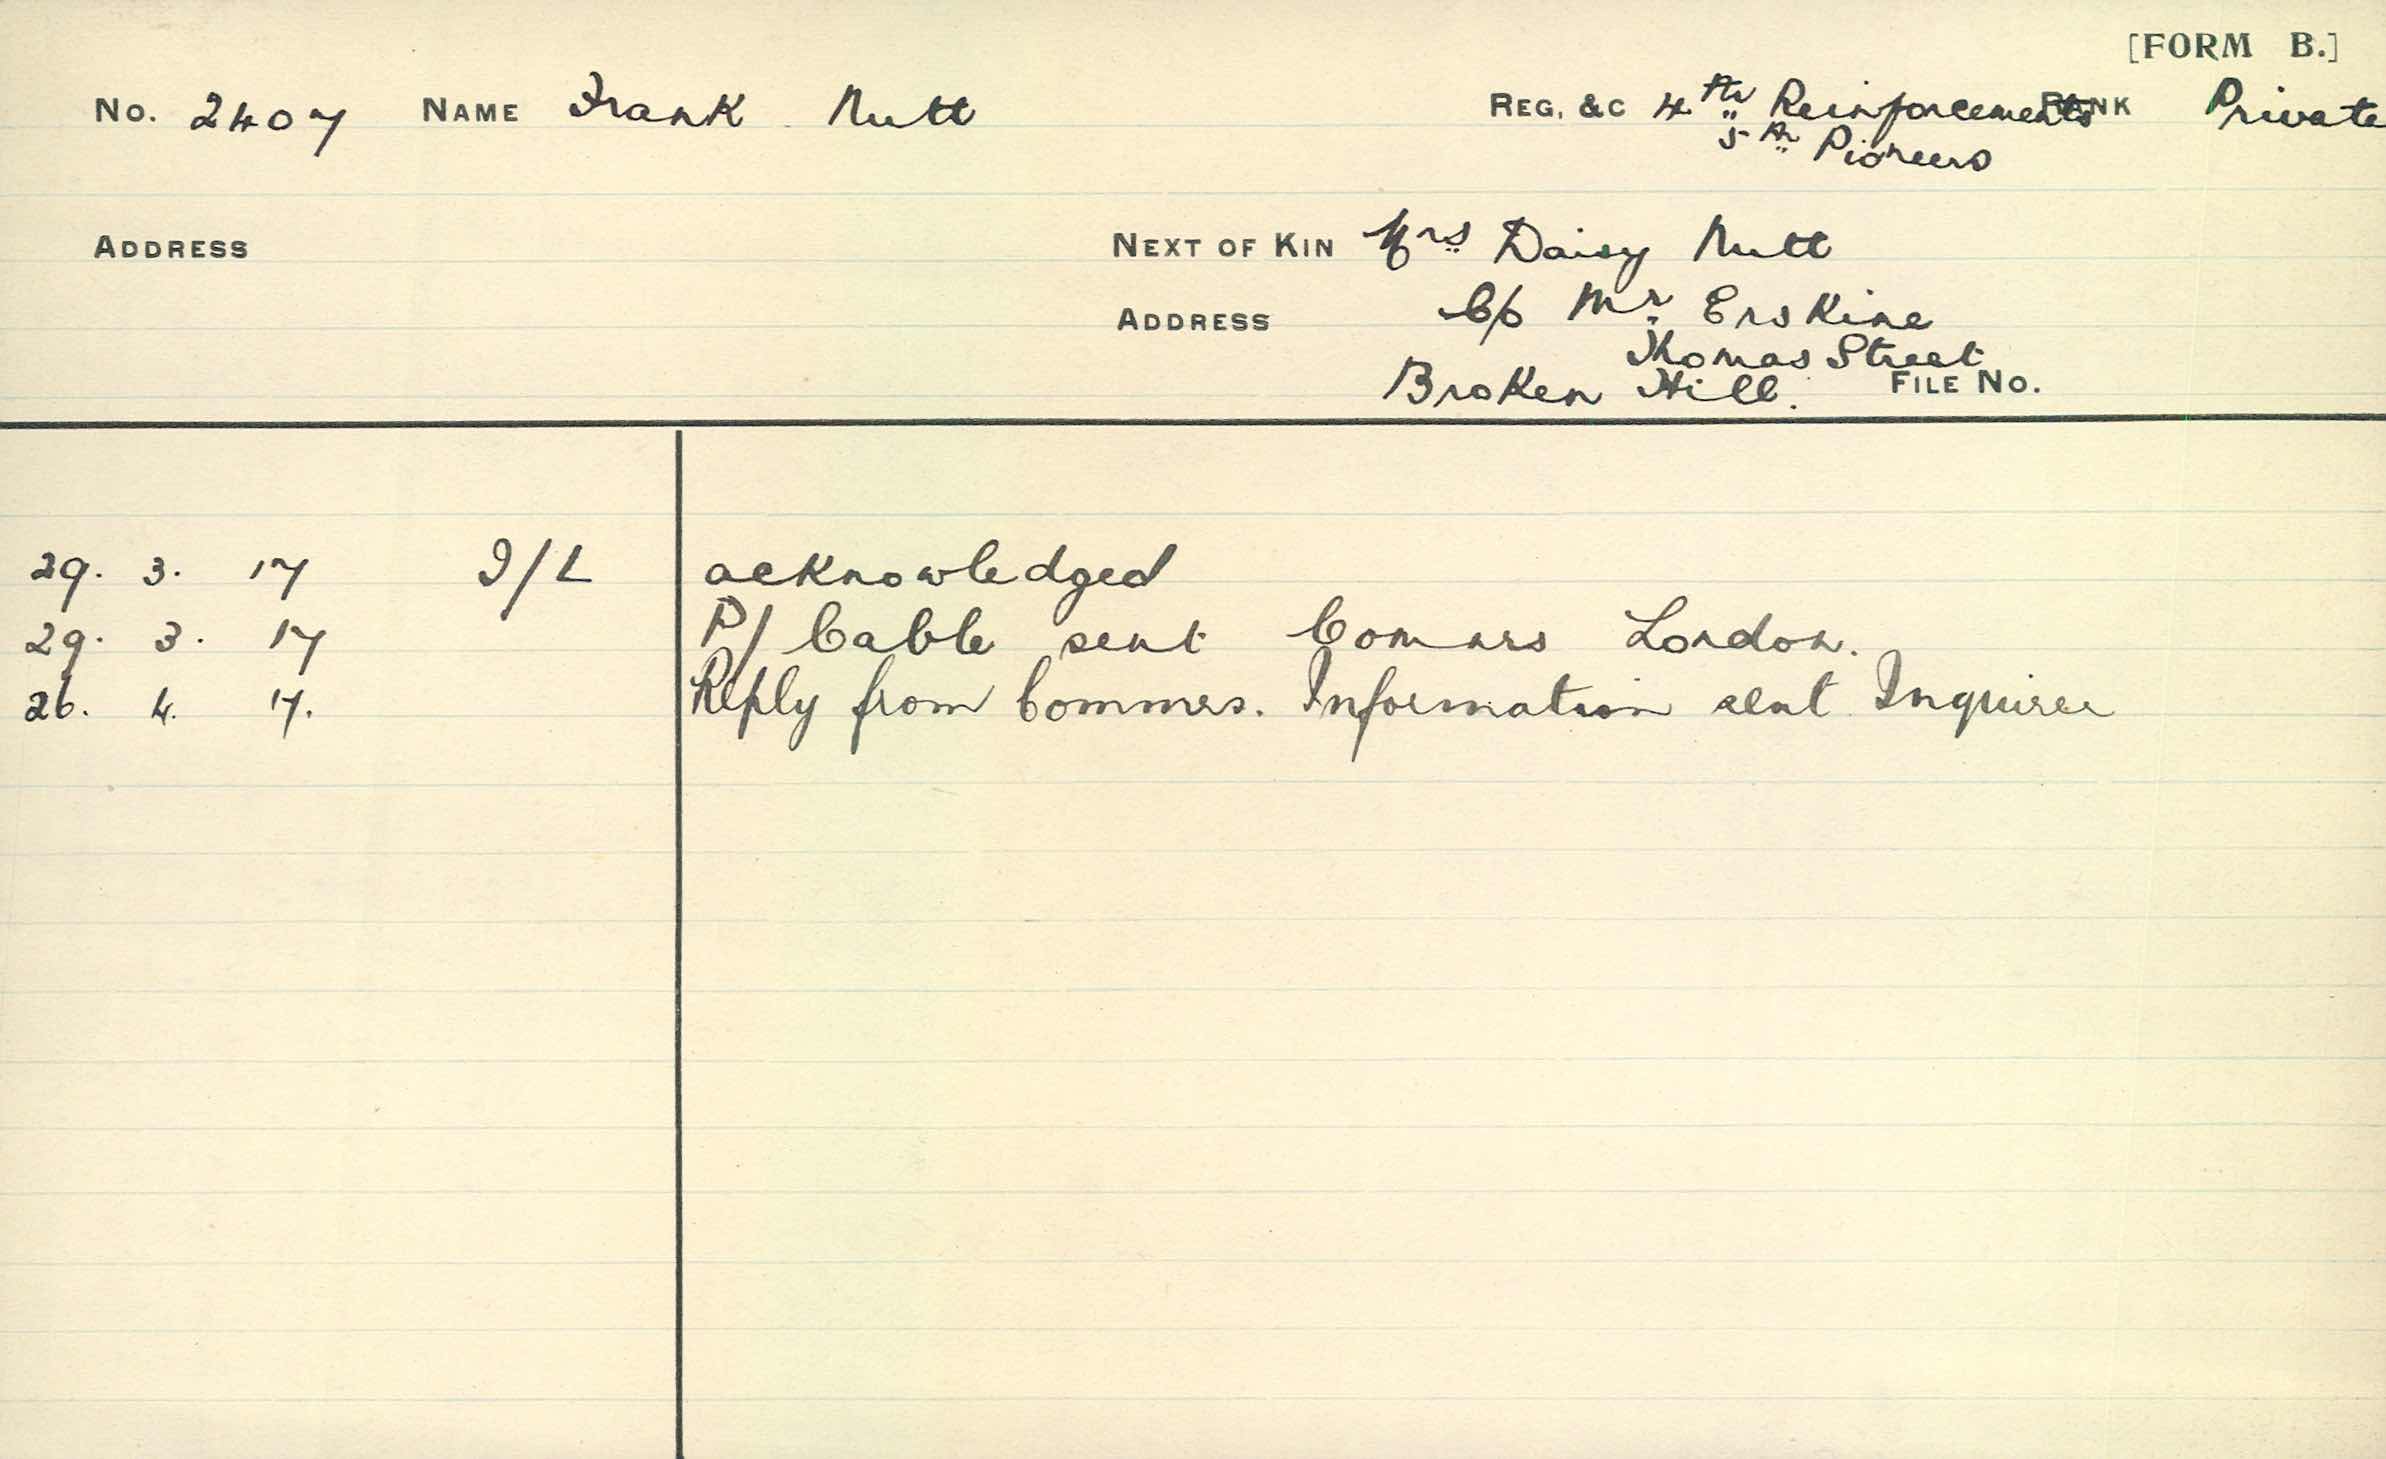 [FORM B.]
No. 2407 NAME Frank Nutt REG. &C 4th Reinforcements RANK Private
5th Pioneers
ADDRESS NEXT OF KIN Mrs Daisy Nutt
ADDRESS C/o Mr Erskine
Thomas Street
Broken Hill. FILE NO.
29. 3. 17 I/L acknowledged
29. 3. 17 P/ Cable sent Comnrs London.
26. 4. 17. Reply from Commrs. Information sent Inquirer